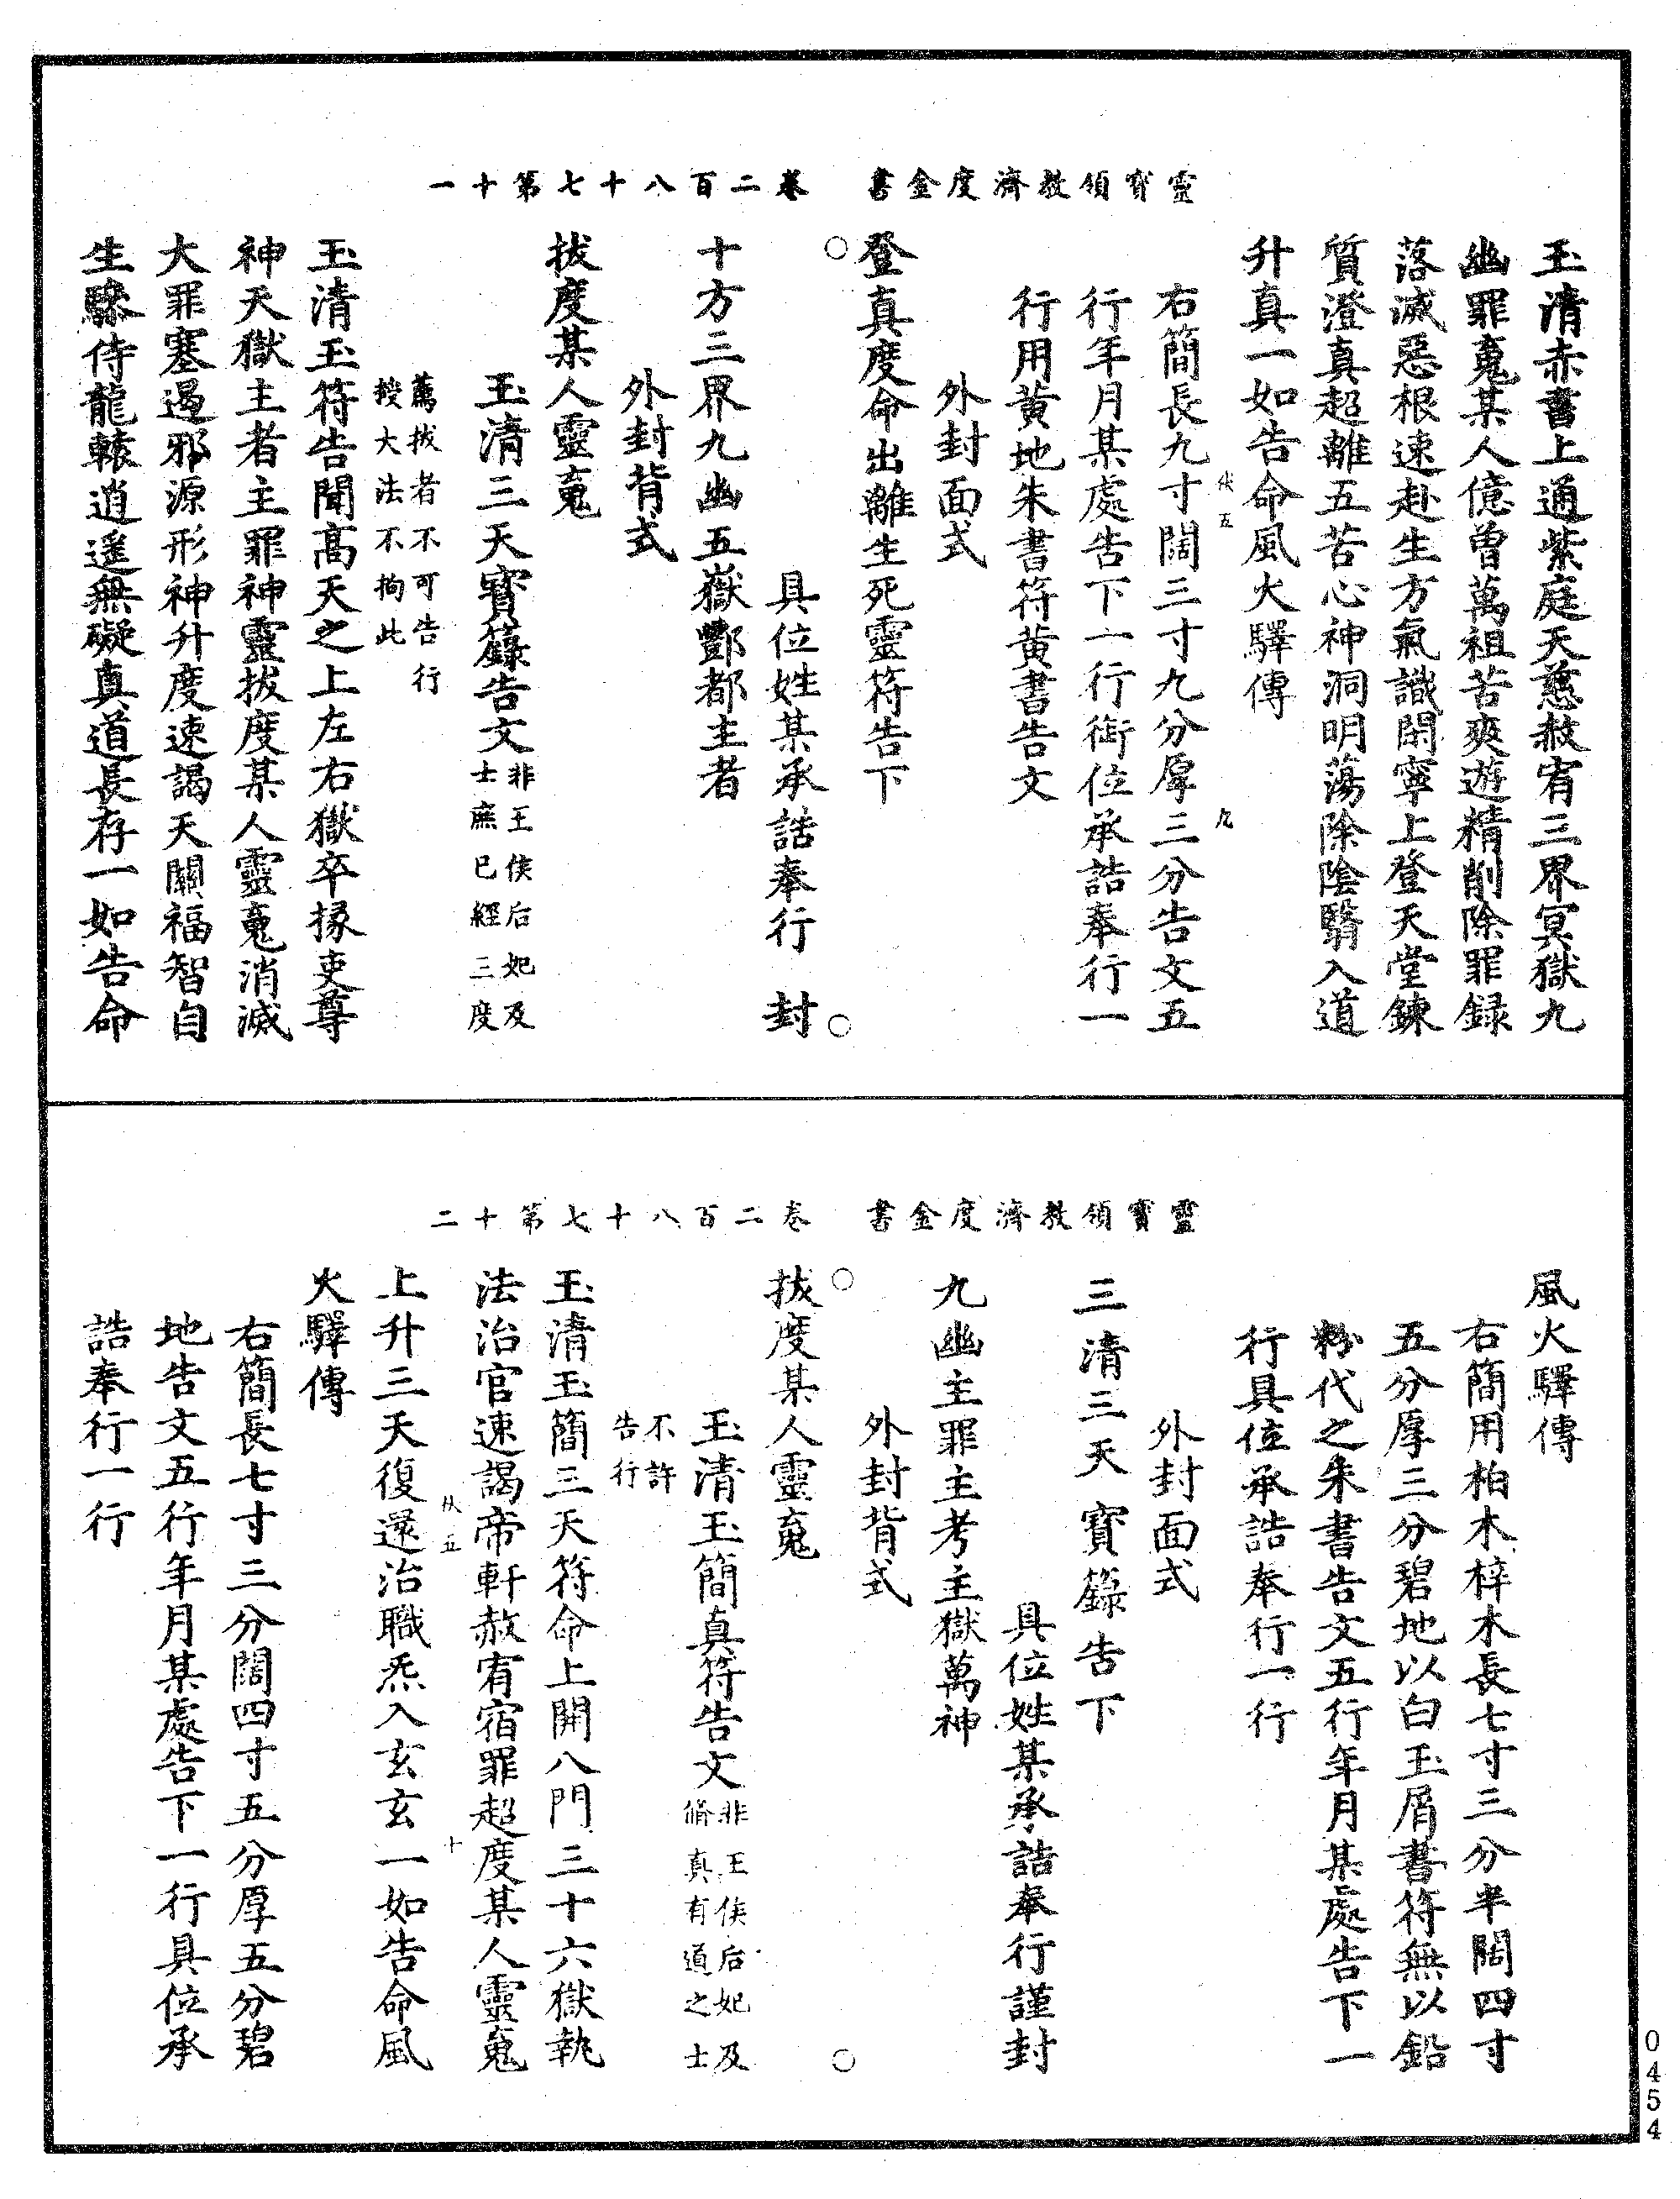 靈寶領教濟度金書　卷二百八十七第十一
玉清赤書上通紫庭天慈赦宥三界冥獄九
幽罪䰟某人億曾萬祖苦爽遊精削除罪録
落滅惡根速赴生方氣識閑寧上登天堂鍊
質澄真超離五苦心神洞明蕩除陰翳入道
升真一如告命風火驛傳
右簡長九寸闊三寸九分厚三分告文五
行年月某處告下一行銜位承誥奉行一
行用黄地朱書符黄書告文
外封面式
登真度命出離生死靈符告下
○　○
具位姓某承誥奉行　封
十方三界九幽五嶽酆都主者
外封背式
拔度某人靈䰟
玉清三天寶籙告文非王侯后妃及
士庶已經三度
薦拔者不可告行
授大法不拘此
玉清玉符告聞高天之上左右獄卒掾吏尊
神天獄主者主罪神靈拔度某人靈䰟消滅
大罪塞遏邪源形神升度速謁天關福智自
生驂侍龍轅逍遥無礙真道長存一如告命
靈寶領教濟度金書　卷二百八十七第十二
風火驛傳
右簡用柏木梓木長七寸三分半闊四寸
五分厚三分碧地以白玉屑書符無以鉛
粉代之朱書告文五行年月某處告下一
行具位承誥奉行一行
外封面式
三清三天寶籙告下
具位姓某承誥奉行謹封
九幽主罪主考主獄萬神
外封背式
○　○
拔度某人靈䰟
玉清玉簡真符告文非王侯后妃及
脩真有道之士
不許
告行
玉清玉簡三天符命上開八門三十六獄執
法治官速謁帝軒赦宥宿罪超度某人靈䰟
上升三天復還治職炁入玄玄一如告命風
火驛傳
右簡長七寸三分闊四寸五分厚五分碧
地告文五行年月某處告下一行具位承
誥奉行一行
0454